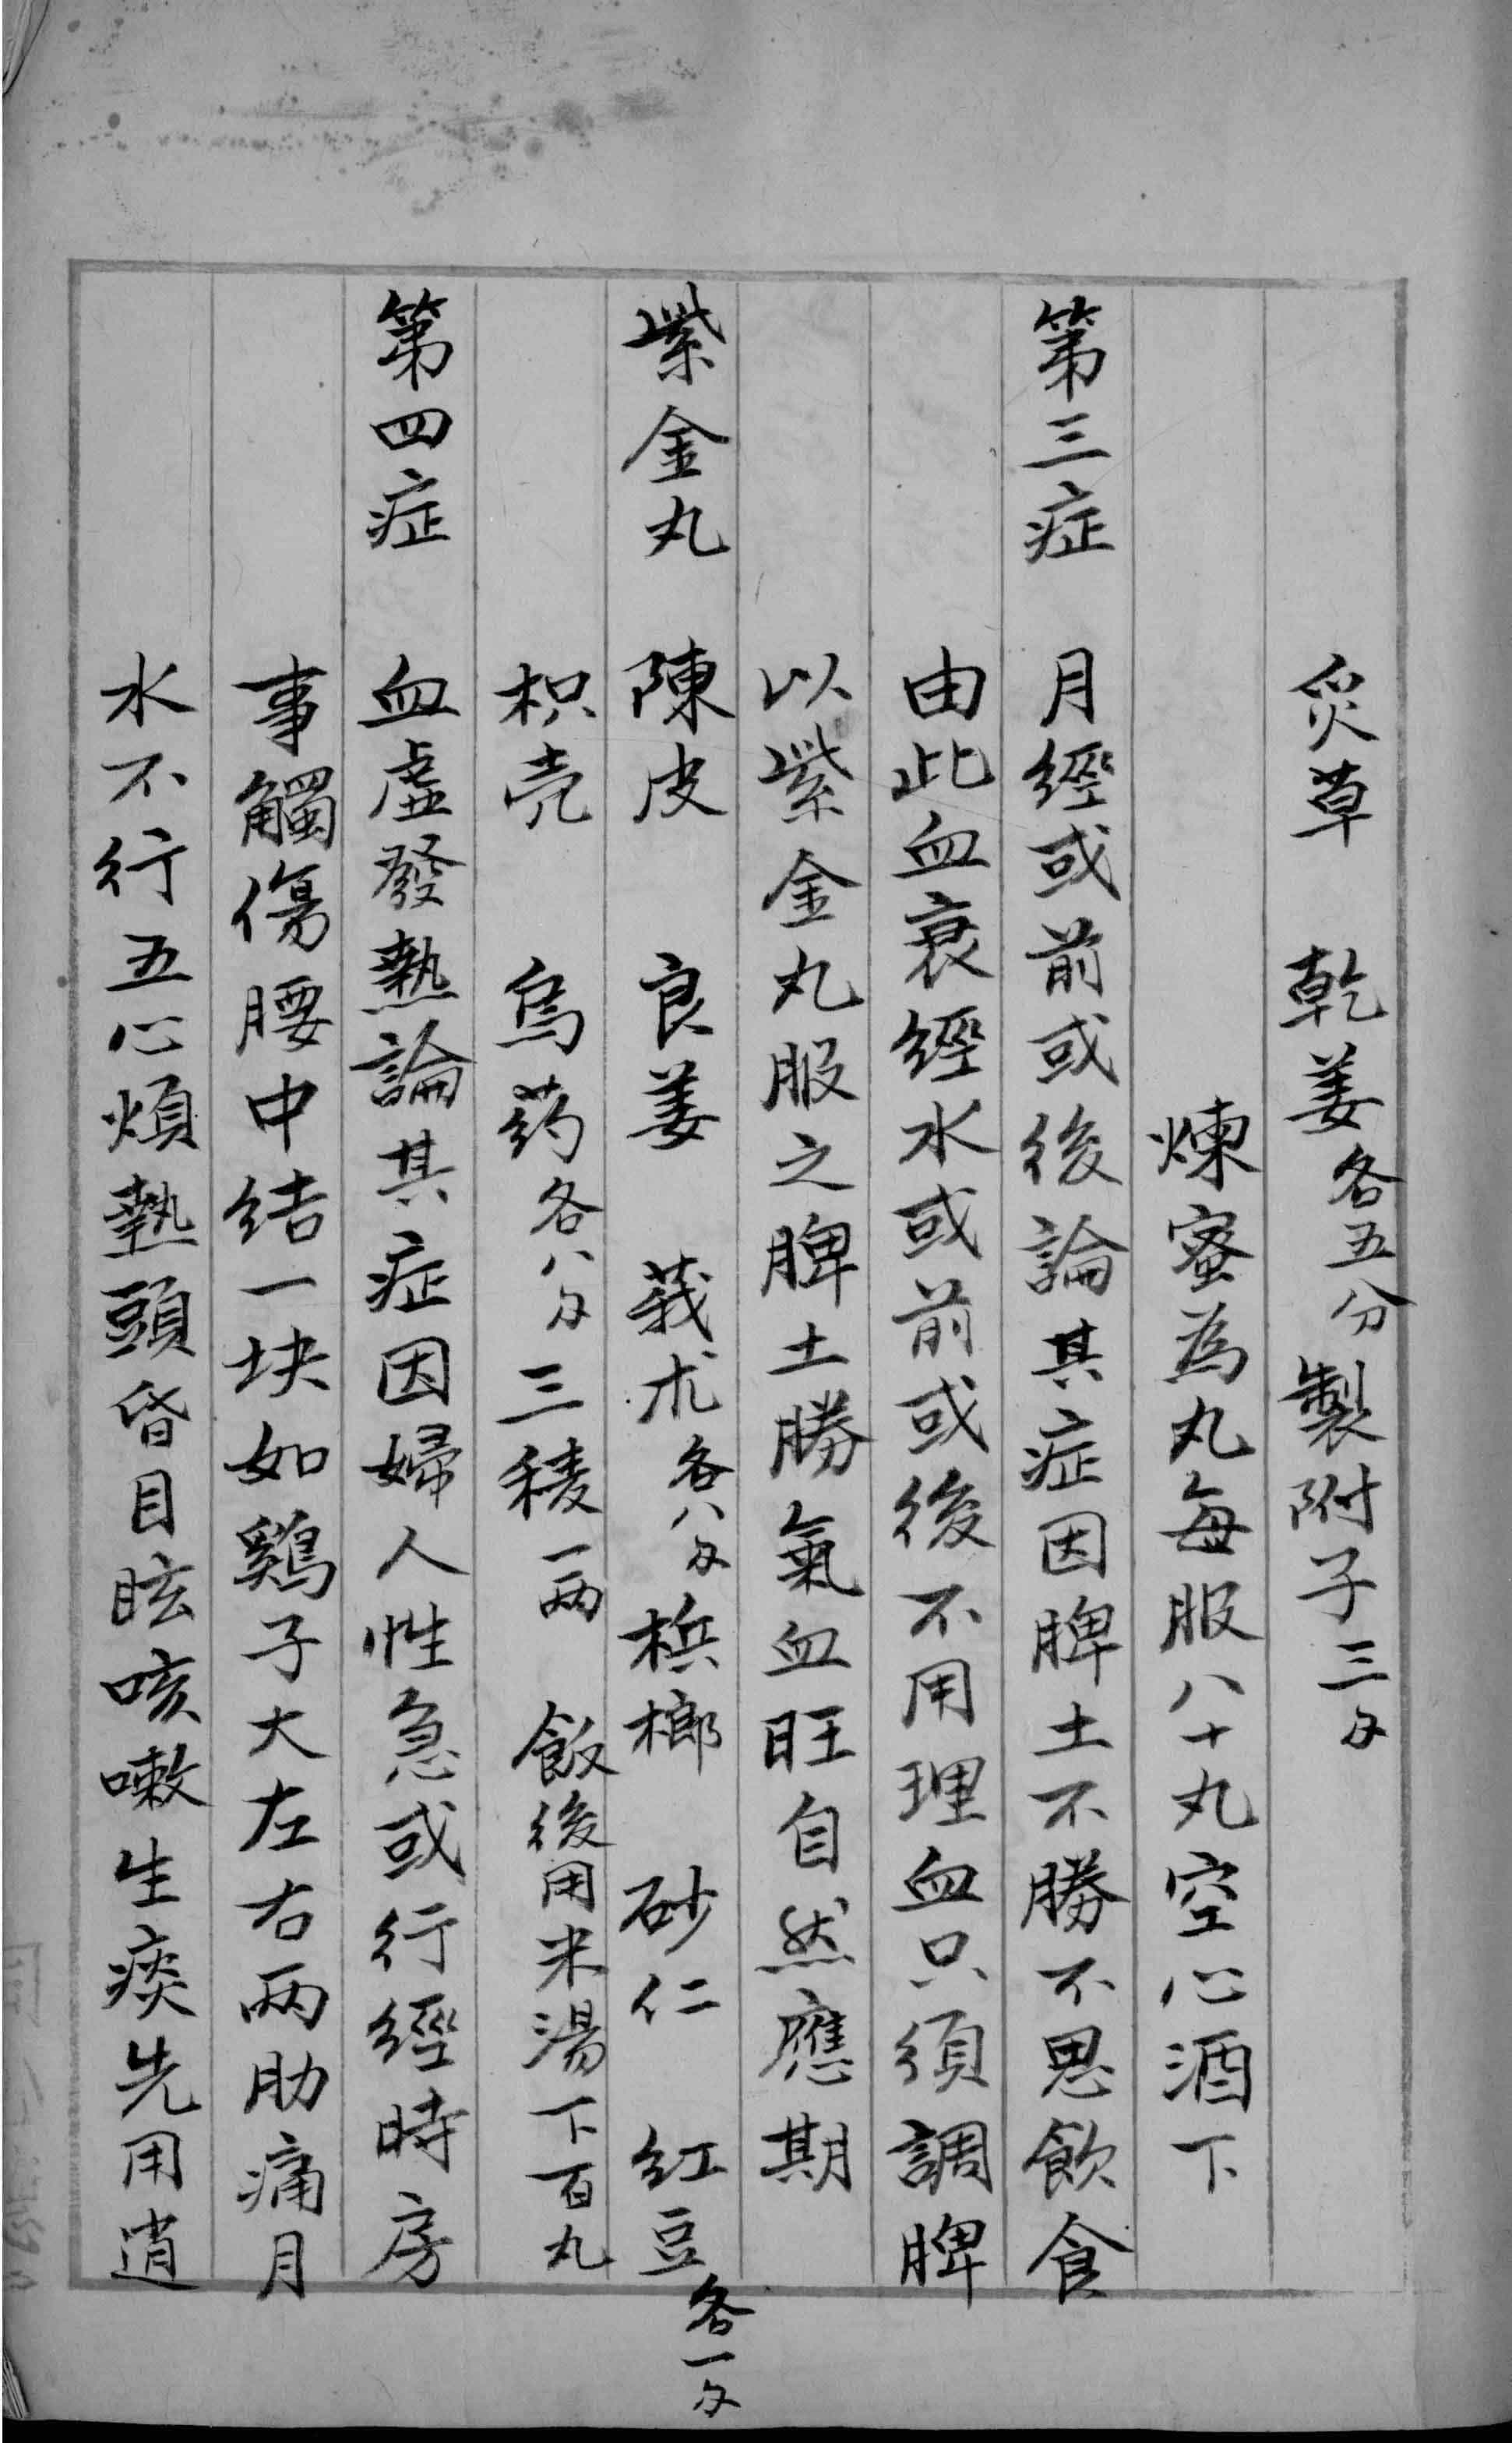 炙草　乾姜各五分　製附子三钱
煉蜜為丸每服八十丸空心酒下
第三症　月經或前或後論其症因脾土不勝不思飲食
由此血衰經水或前或後不用理血只須調脾
以紫金丸服之脾土勝氣血旺自然應期
紫金丸　陳皮　良姜　莪朮各八钱　槟榔　砂仁　红豆各一钱
枳壳　烏药各八钱　三稜一两　飯後用米湯下百丸
第四症　血虚發熱論其症因婦人性急或行經時房
事觸傷腰中结一块如鷄子大左右两肋痛月
水不行五心煩熱頭昏目眩咳嗽生痰先用逍